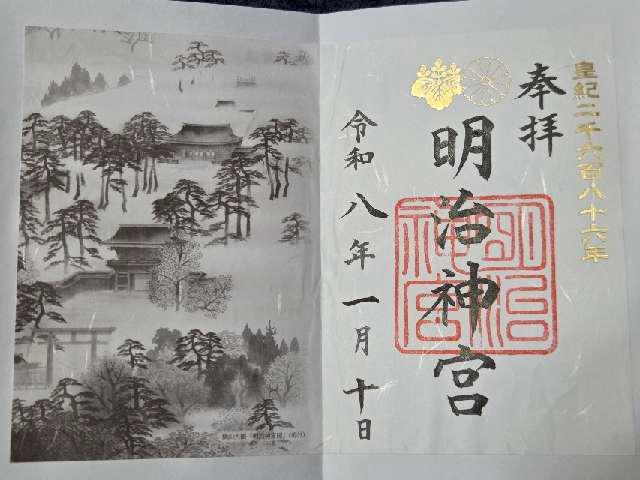 皇紀二千六百八十六年
奉拝
明治神宮
明治神宮
令和八年一月十日